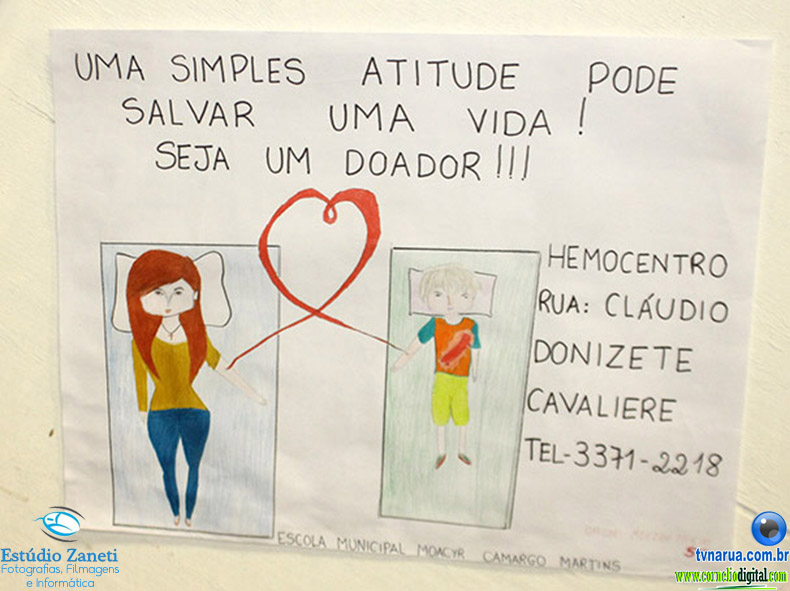 UMA SIMPLES ATITUDE PODE
SALVAR UMA VIDA !
SEJA UM DOADOR !!!
HEMOCENTRO
RUA: CLÁUDIO
DONIZETE
CAVALIERE
TEL-3371-2218
ESCOLA MUNICIPAL MOACYR CAMARGO MARTINS
Estúdio Zaneti
Fotografias, Filmagens
e Informática
tvnarua.com.br
www.corneliodigital.com